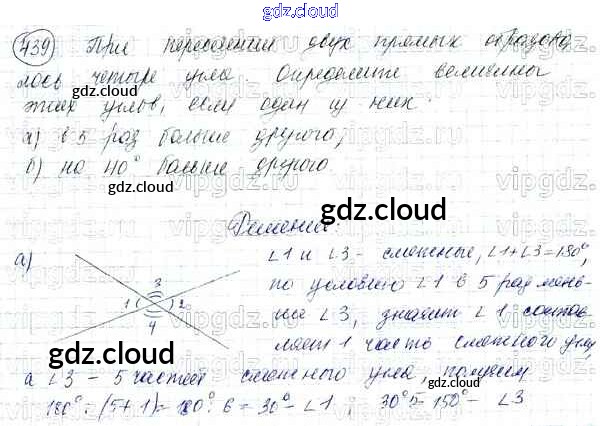 gdz.cloud
439 При пересечении двух прямых образова
лось четыре угла. Определите величины
этих углов, если один из них:
gdz.cloud
а) в 5 раз больше другого;
б) на 40° больше другого.
gdz.cloud
gdz.cloud
Решение:
а)
∠1 и ∠3 - смежные, ∠1+∠3=180°,
по условию ∠1 в 5 раз мень-
ше ∠3, значит ∠1 состав-
ляет 1 часть смежного угла,
3
1 2
4
gdz.cloud
gdz.cloud
а ∠3 - 5 частей смежного угла, получим
gdz.cloud
180° : (5+1) = 180° : 6 = 30° - ∠1 ; 30°·5=150° - ∠3